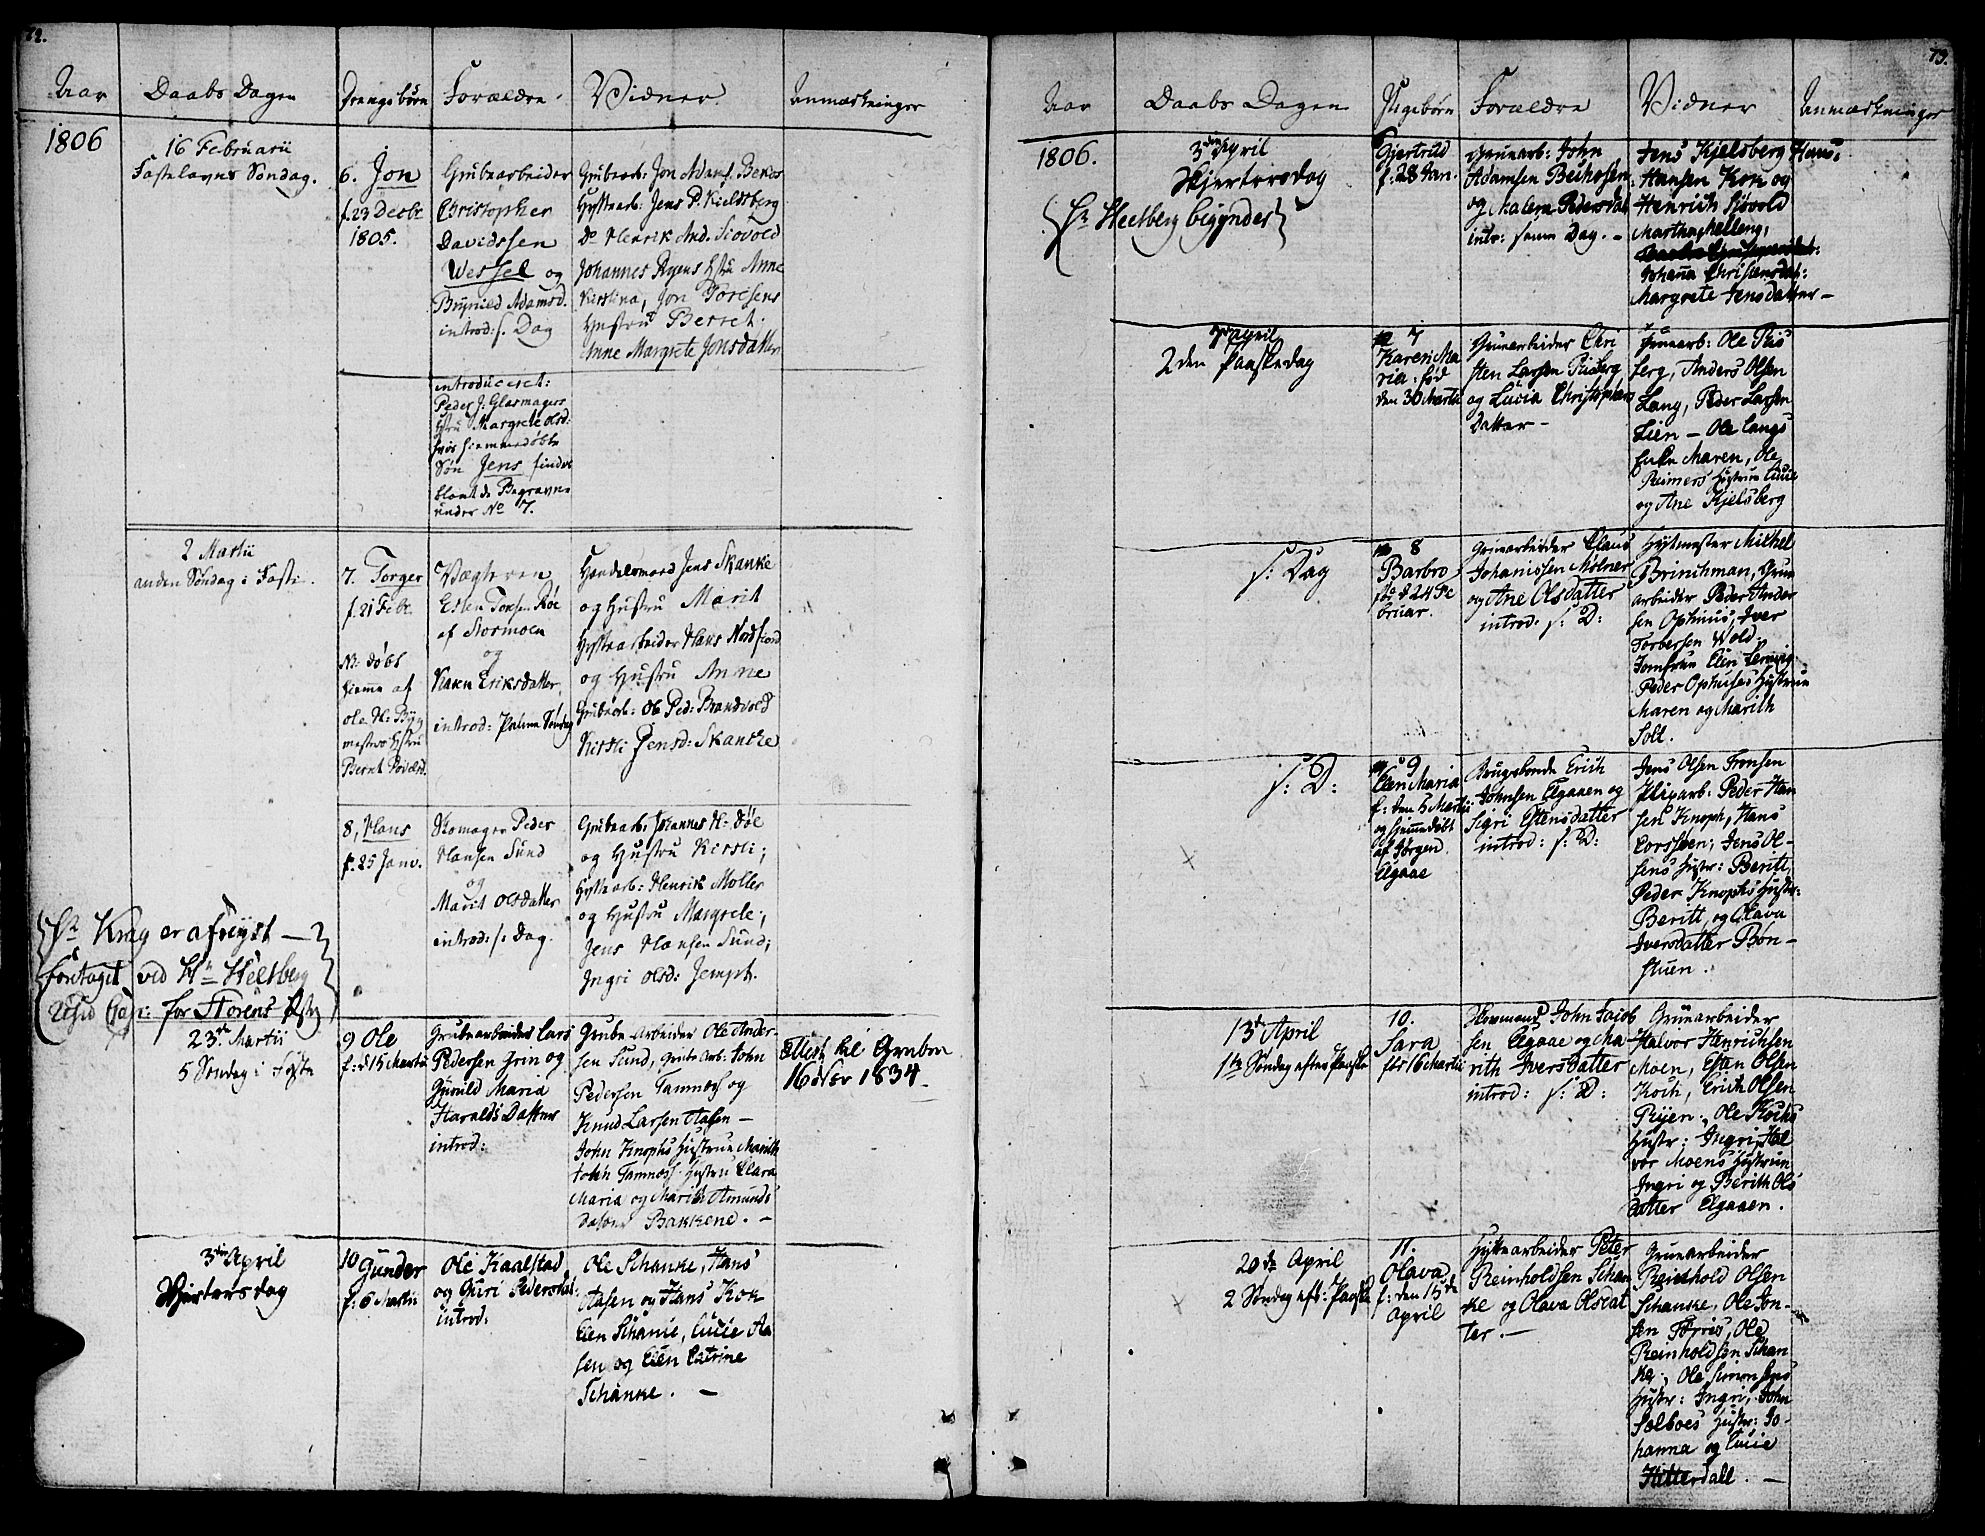 72.
Aar
Daabs Dagen
Drengebørn
Forældre
Vidner
Anmærkninger
1806
16 Februarii
Fastelavns Søndag.
6. Jon
f. 23 Decbr
1805.
Grubearbeider
Christopher
Davidssen
Wessel og
Brynild Adamsd.
introd: s. Dag
Grubearb: Jon Adams. Benos
Hyttearb: Jens P. Kieldsberg
Do Henrik And. Siovold
Johannes Ryens Hstru Anne
Kirstina, Jon Torisens
Hustru Berret.
Anne Margrete Jonsdatter
introduceret:
Peder J. Glasmagers
Hstru Margrete Olsd:
hvis hiemmedøbte
Søn Jens findes
blant de Begravne
under No 7.
2 Martii
anden Søndag i Faste.
7. Torger
f. 21 Febr.
N: døbt
hiemme af
Ole H: Byg
mesters Hstru
Berret
Vægteren
Esten Røe
af Stormoen
og
Karn Eriksdatter
introd: Palme Søndag
Handelsmand Jens Skanke
og Hustru Marit
Hyttearbeider Hans Nordfiord
og Hustru Anne
Grubearb: Ole Ped: Brandvold
Kirsti Jensd: Skancke
8, Hans
f. 25 Janv.
Skomager Peder
Hansen Sund
og
Marit Olsdatter
introd: s. Dag.
Grubearb: Johannes H: Døe
og Hustru Kirsti;
Hyttearb: Henrik Møller
og Hustru Margrete;
Jens Hansen Sund;
Ingri Olsd: Jempt.
Hr Krag er afreyst —
foretaget ved Hr Heltberg
for Florens
23de Martii
5 Søndag i Faste
9 Ole
f: d 15 Martii
Grubearbeider Lars
Pedersen Grin og
Gunild Maria
Haralds Datter
introd:
Grube Arbeider Ole Ander-
sen Sund, Grube Arb: John
Pedersen Tamnes og
Knud Larsen Aasen —
John Knophs Hustrue Marith
John Tamnes Hustru Clara
Maria og Marith Amunds
datter Bakkene. —
Attest til Gruben
16 1834
3die April
Skiertorsdag
10 Gunder
f: 6 Martii
Ole Kaalstad
og Guri Pedersdat:
introd:
Ole Schanke, Hans
Aasen og Hans Kok
Elen Schanke, Lucie Aa
sen og Elen Catrine
Schanke. —
73.
Aar
Daabs Dagen
Pigebørn
Forældre
Vidner
Anmærkninger
1806.
3die April
Skjertorsdag
{Hr Heltberg begynder}
Gjertrud
f: 28 Jan.
Gruearb: John
Adamsen Beihosen
og Malena Pedersdat
introd: samme Dag. —
Jens Kjelsberg Hans
Hansen Kok og
Henrich Siovold
Martha Melleng,
Johanna Christensdat:
Margrete Jensdatter —
7de April
2den Paaskedag
7
Karen Ma
ria. fød
den 30 Martii
Gruearbeider Chri
sten Larsen Riisberg
og Lucia Christophers
Datter —
Gruearb: Ole Riis
berg, Anders Olsen
Lang, Peder Larsen
Lien — Ole Langs
Enke Maren, Ole
Reimers Hustrue Lucie
og Ane Kjelsberg
s: Dag
8
Barbro
fød d 24 Fe
bruar.
Gruearbeider Claus
Johanissen Mølner
og Ane Olsdatter
introd: s: D:
Hytmester Mikkel
Brinchman, Grue
arbeider Peder Ander
sen Ophuus, Iver
Torbersen Wold,
Jomfrue Elen
Peder Ophuses Hustrue
Maren og Marith
Soll.
s: D:
9
Elen Maria
f: den 5 Martii
og hjemmedøbt
af Jørgen
Elgaae
Brugsbonde Erich
Johnsen Elgaaen og
Sigri Estensdatter
introd: s: D:
Jens Olsen Tronsen
Peder Han
sen Knoph, Hans
Corssøen, Jens Ol-
sens Hustr: Beritt,
Peder Knophs Hustr:
Beritt, og Olava
Iversdatter Bøn-
stuen.
13de April
1te Søndag efter Paaske
10.
Sara
fød 16 Martii
John Jacob
sen Elgaae og Ma
rith Iversdatter
introd: s: D:
Gruearbeider
Halvor Henrichsen
Moen, Esten Olsen
Koch, Erich Olsen
Ryen. Ole Kochs
Hustr: Ingri, Hal
vor Moens Hustrue
Ingri og Berith Ols
datter Elgaaen.
20de April
2 Søndag eft: Paaske
11.
Olava
f: den 15de
April
Hyttearbeider Peter
Reinholdsen Schan
ke og Olava Olsdat
ter. —
Gruearbeider
Reinhold Olsen
Schanke, Ole Jon-
sen Tøris, Ole
Reinholdsen Schan
ke. Ole Simonsens
Hustr: Ingri, John
Selboes Hustr: Jo-
hanna og Lucie
Hitterdall. —